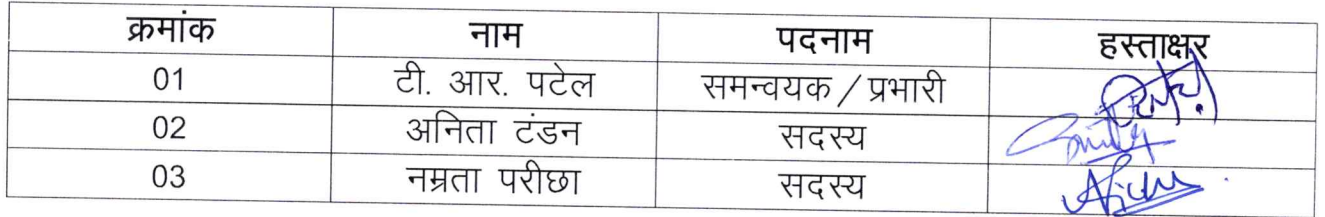 क्रमांक नाम पदनाम हस्ताक्षर
01 टी. आर. पटेल समन्वयक / प्रभारी
02 अनिता टंडन सदस्य
03 नम्रता परीछा सदस्य